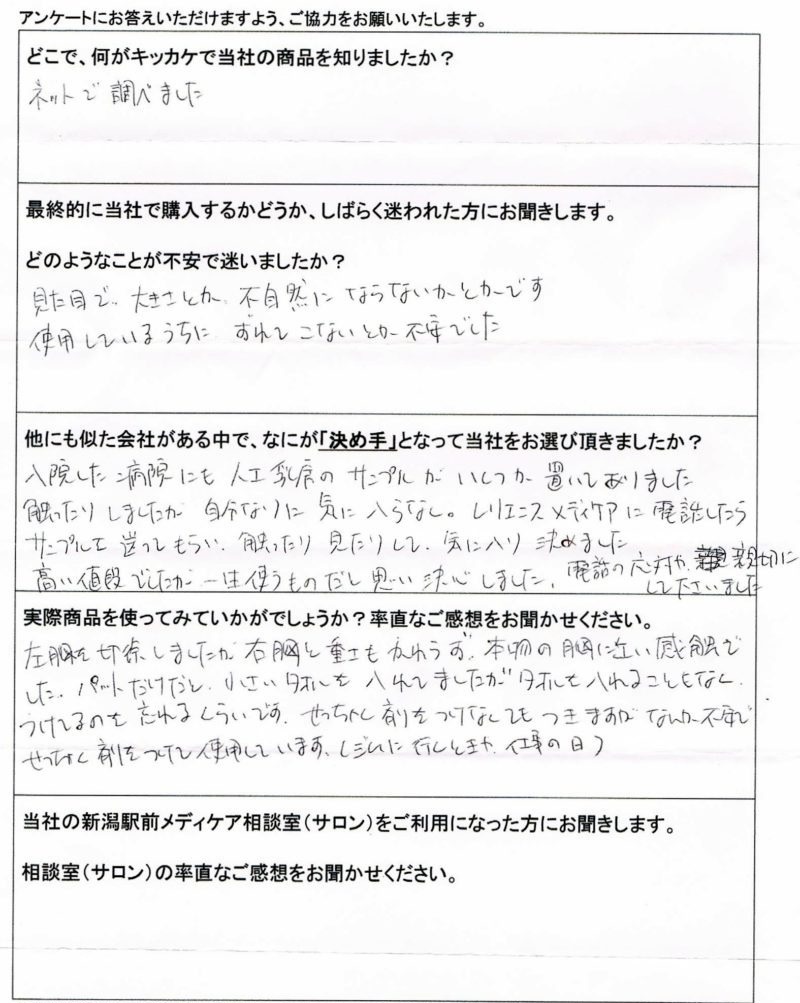 アンケートにお答えいただけますよう、ご協力をお願いいたします。
どこで、何がキッカケで当社の商品を知りましたか？
ネットで調べました
最終的に当社で購入するかどうか、しばらく迷われた方にお聞きします。
どのようなことが不安で迷いましたか？
見た目で、大きさとか、不自然にならないかとかです
使用しているうちに、ずれてこないとか不安でした
他にも似た会社がある中で、なにが「決め手」となって当社をお選び頂きましたか？
入院した病院にも人工乳房のサンプルがいくつか置いてありました
触ったりしましたが自分なりに気に入らなし。レリエンスメディケアに電話したら
サンプルを送ってもらい、触ったり見たりして、気に入り決めました
高い値段でしたが一生使うものだし思い決心しました、電話の応対や、親切に
して下さいました
実際商品を使ってみていかがでしょうか？率直なご感想をお聞かせください。
左胸を切除しましたが右胸と重さもかわらず、本物の胸に近い感触で
した、パットだけだと、小さいタオルを入れてましたがタオルを入れることもなく、
つけてるのを忘れるくらいです、せっちゃく剤をつけなくてもつきますがなんか不安で
せっちゃく剤をつけて使用しています、(ジムに行くときや、仕事の日)
当社の新潟駅前メディケア相談室（サロン）をご利用になった方にお聞きします。
相談室（サロン）の率直なご感想をお聞かせください。